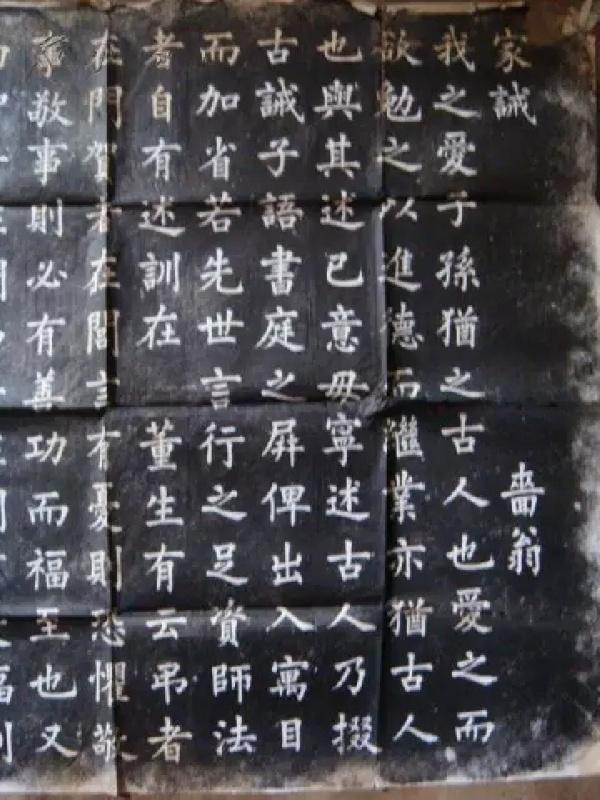 家誡　嗇翁
我之愛子孫猶之古人也愛之而
欲勉之以進德而繼業亦猶古人
也與其述已意毋寧述古人乃掇
古誡子語書庭之屏俾出入寓目
而加省若先世言行之足資師法
者自有述訓在　董生有云弔者
在門賀者在閭言有憂則恐懼敬
事敬事則必有善功而福至也又